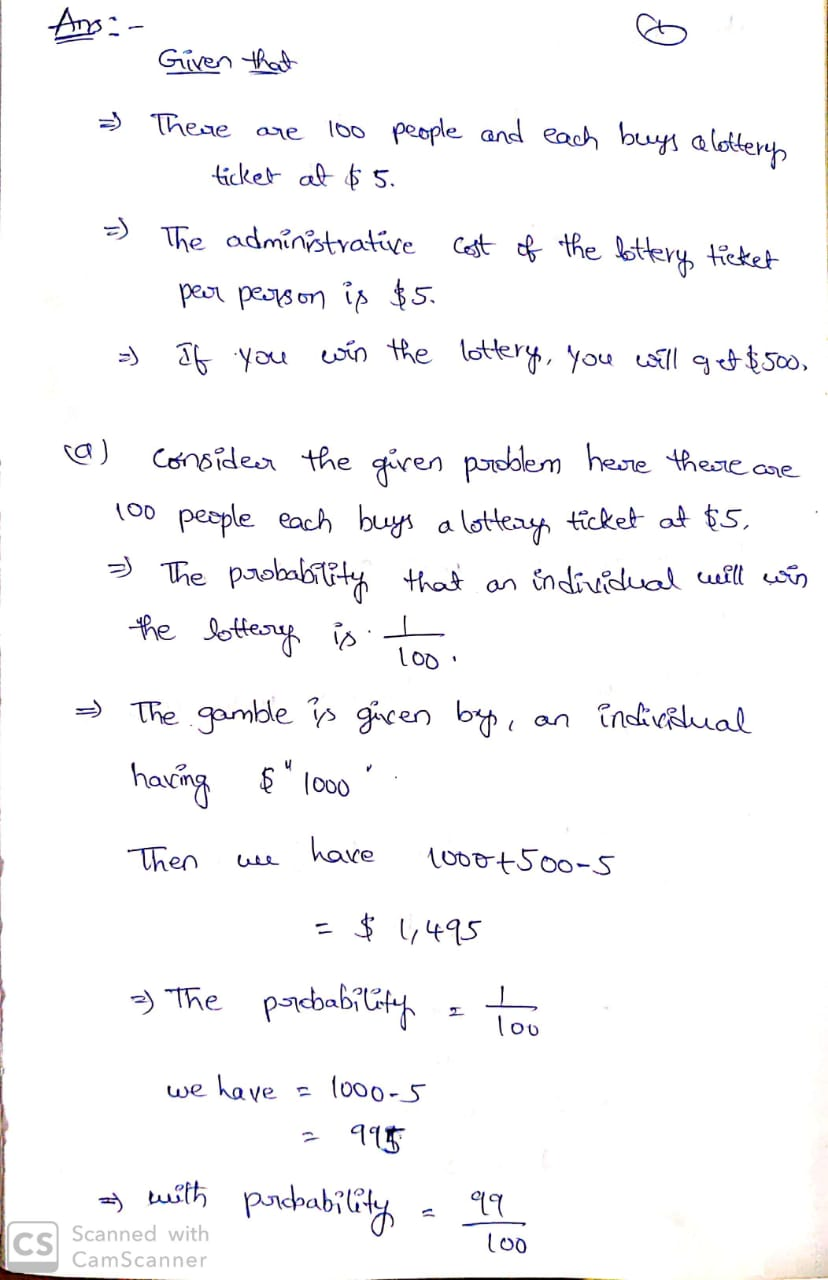 Ans:-
Given that
⇒ There are 100 people and each buys a lottery
ticket at $5.
⇒ The administrative cost of the lottery ticket
per person is $5.
⇒ If you win the lottery, you will get $500,
(a) Consider the given problem here there are
100 people each buys a lottery ticket at $5,
⇒ The probability that an individual will win
the lottery is 1/100.
⇒ The gamble is given by, an individual
having $"1000".
Then we have 1000+500-5
= $ 1,495
⇒ The probability = 1/100
we have = 1000-5
= 995
⇒ with probability = 99/100
CS Scanned with
CamScanner